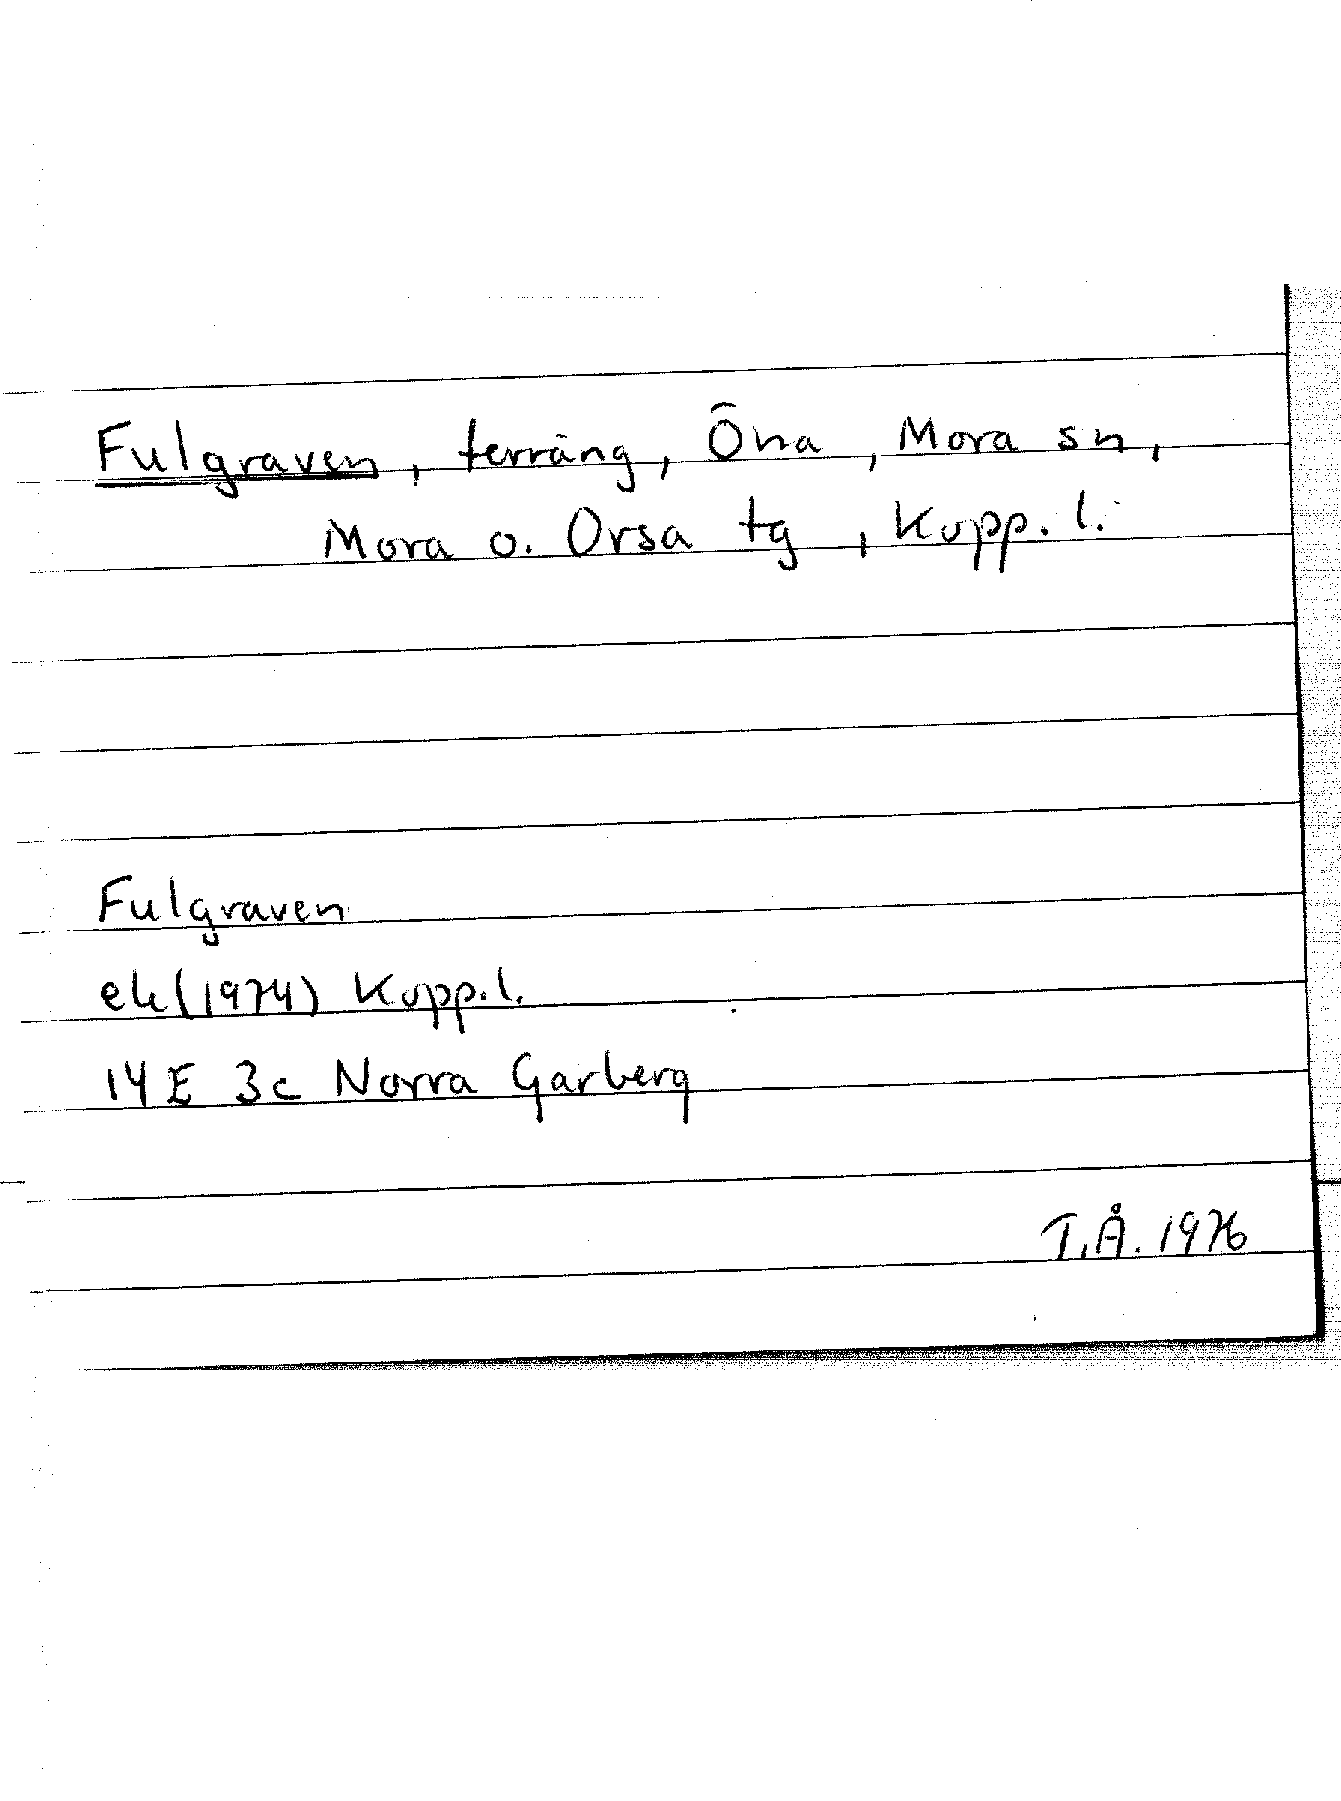 Fulgraven, terräng, Öna, Mora sn,
Mora o. Orsa tg, Kopp. l.
Fulgraven
ek (1974) Kopp. l.
14 E 3c Norra Garberg
T.Å. 1976